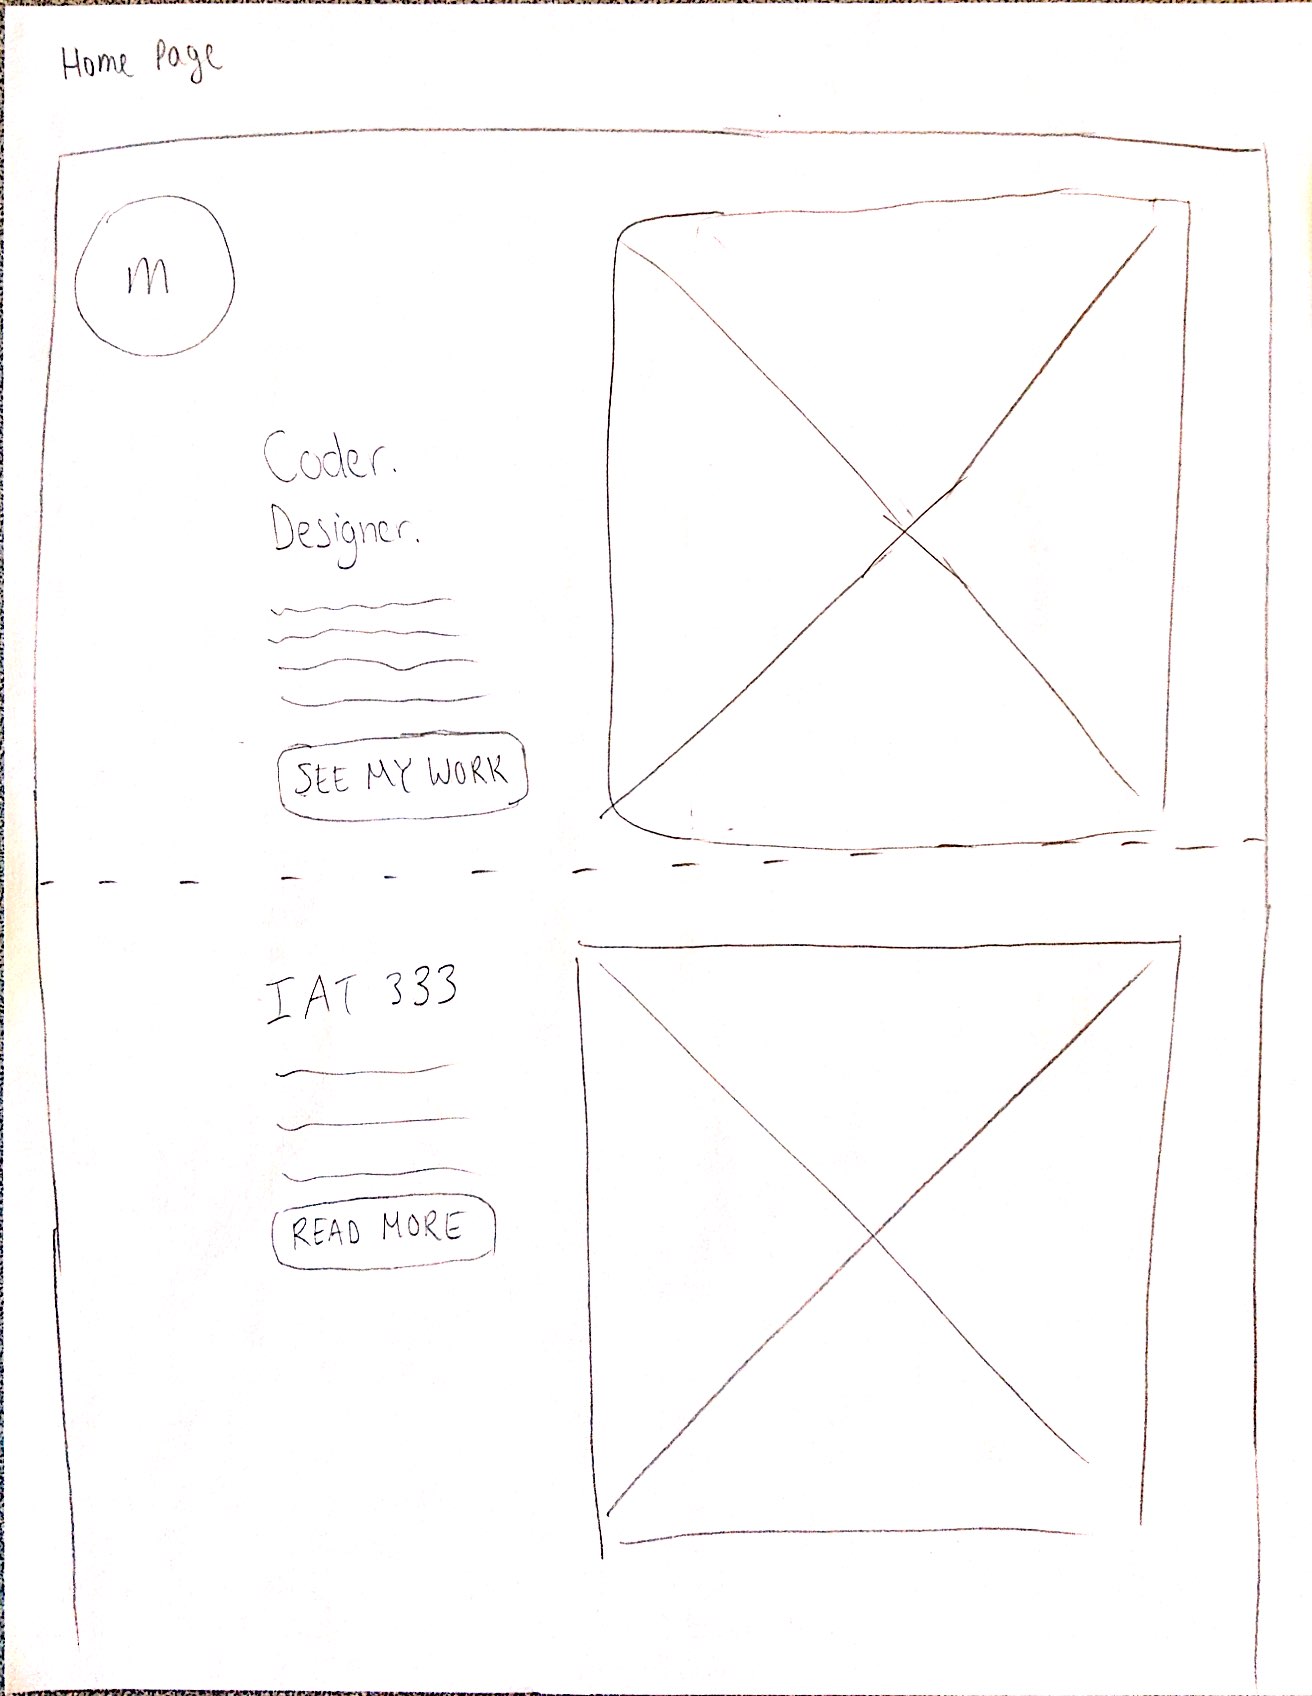 Home Page
m
Coder.
Designer.
SEE MY WORK
IAT 333
READ MORE